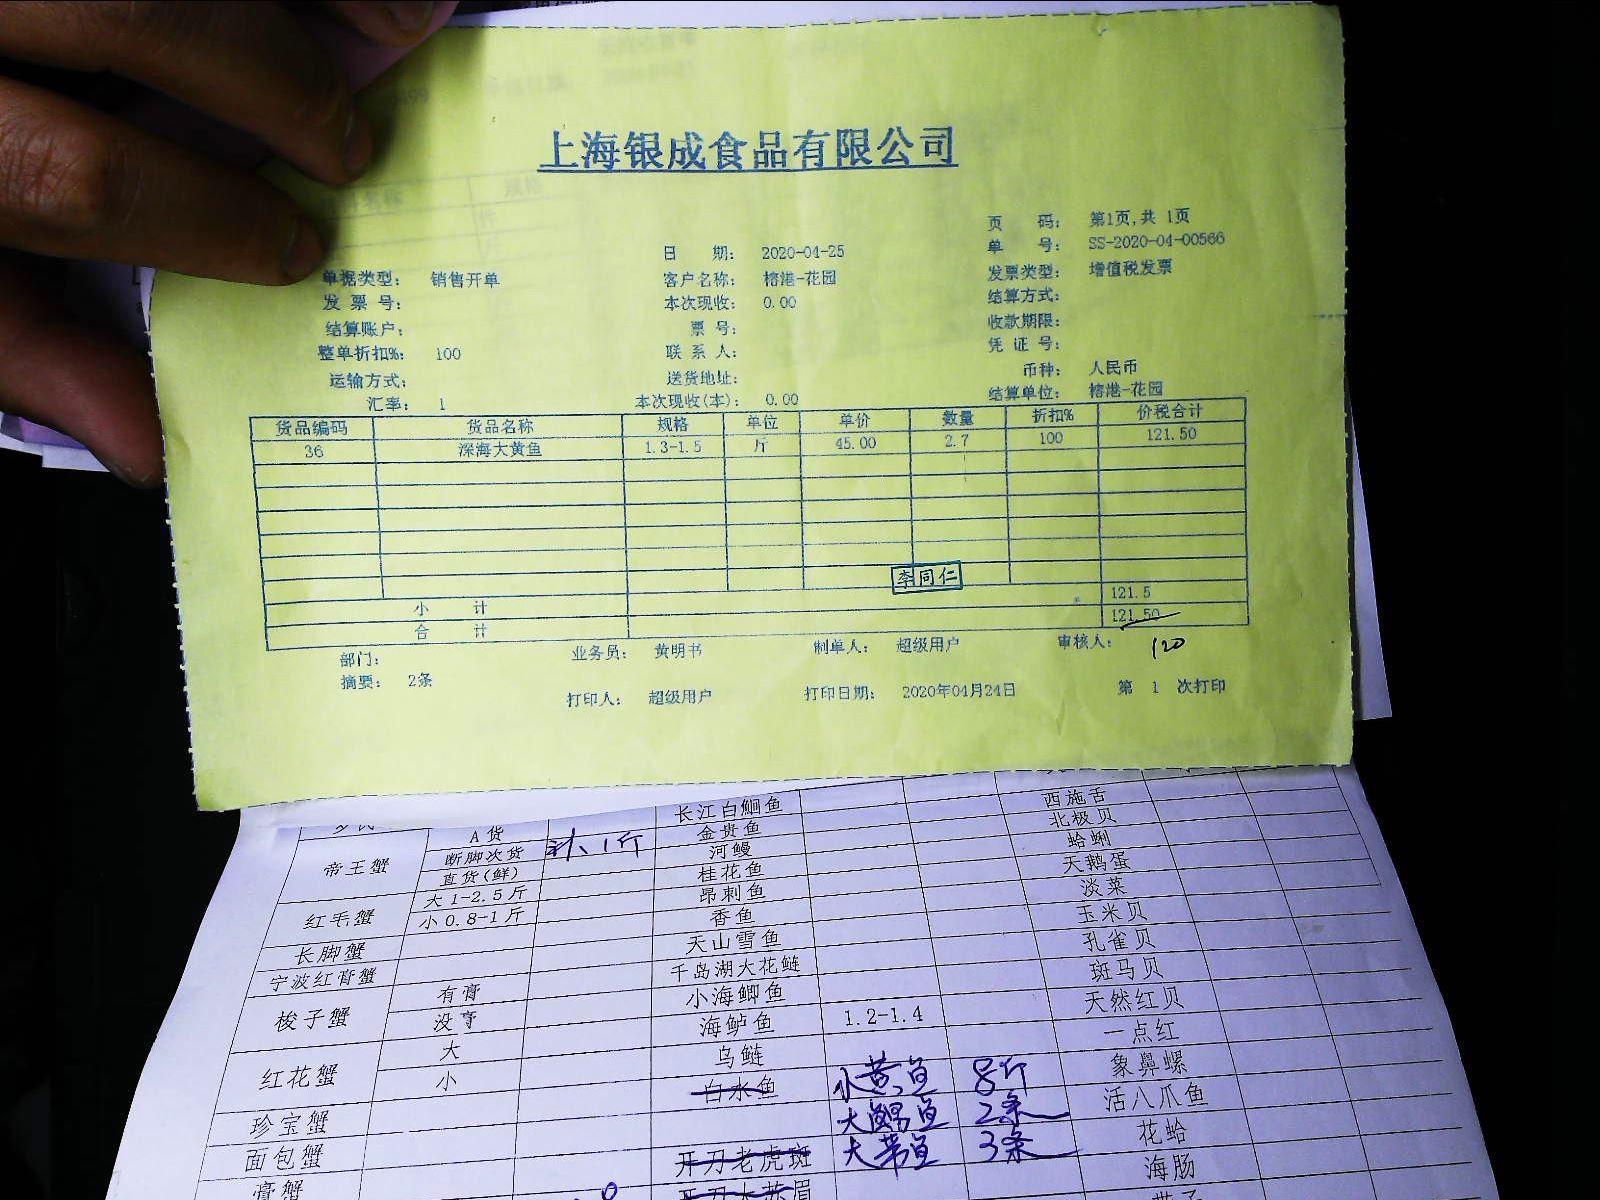 上海银成食品有限公司
页 码： 第1页,共 1页
日 期： 2020-04-25 单 号： SS-2020-04-00566
单据类型： 销售开单 客户名称： 榕港-花园 发票类型： 增值税发票
发 票 号： 本次现收： 0.00 结算方式：
结算账户： 票 号： 收款期限：
整单折扣%： 100 联 系 人： 凭 证 号：
运输方式： 送货地址： 币种： 人民币
汇率： 1 本次现收(本)： 0.00 结算单位： 榕港-花园
货品编码 货品名称 规格 单位 单价 数量 折扣% 价税合计
36 深海大黄鱼 1.3-1.5 斤 45.00 2.7 100 121.50
李同仁
小 计 121.5
合 计 121.50
部门： 业务员： 黄明书 制单人： 超级用户 审核人： 120
摘要： 2条
打印人： 超级用户 打印日期： 2020年04月24日 第 1 次打印
长江白鮰鱼 西施舌
A货 金贵鱼 北极贝
帝王蟹 断脚次货 1斤 河鳗 蛤蜊
直货(鲜) 桂花鱼 天鹅蛋
红毛蟹 大1-2.5斤 昂刺鱼 淡菜
小0.8-1斤 香鱼 玉米贝
长脚蟹 天山雪鱼 孔雀贝
宁波红膏蟹 千岛湖大花鲢 斑马贝
梭子蟹 有膏 小海鲫鱼 天然红贝
没膏 海鲈鱼 1.2-1.4 一点红
红花蟹 大 乌鲢 象鼻螺
小 白水鱼 小黄鱼 8斤 活八爪鱼
珍宝蟹 大鲳鱼 2条 花蛤
面包蟹 开刀老虎斑 大带鱼 3条 海肠
膏蟹